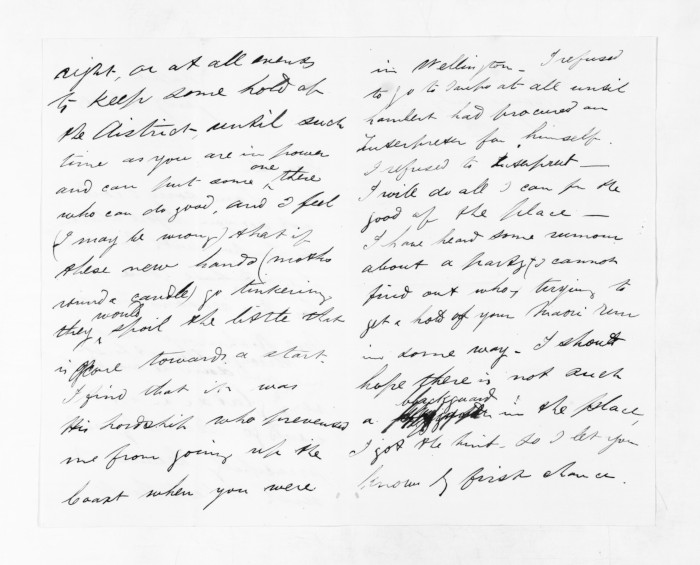 right, or at all events
to keep some hold of
the District, until such
time as you are in power
and can put some one there
who can do good, and I feel
(I may be wrong) that if
these new hands (moths
round a candle) go tinkering
they would spoil the little that
is done towards a start.
I find that it was
His Lordship who prevented
me from going up the
Coast when you were
in Wellington - I refused
to go to Taupo at all until
Lambert had procured an
Interpreter for himself.
I refused to Interpret —
I will do all I can for the
good of the place —
I have heard some rumour
about a party (I cannot
find out who) trying to
get a hold of your Maori run
in some way - I should
hope there is not such
a blackguard in the place,
I got the hint - so I let you
know by first chance.